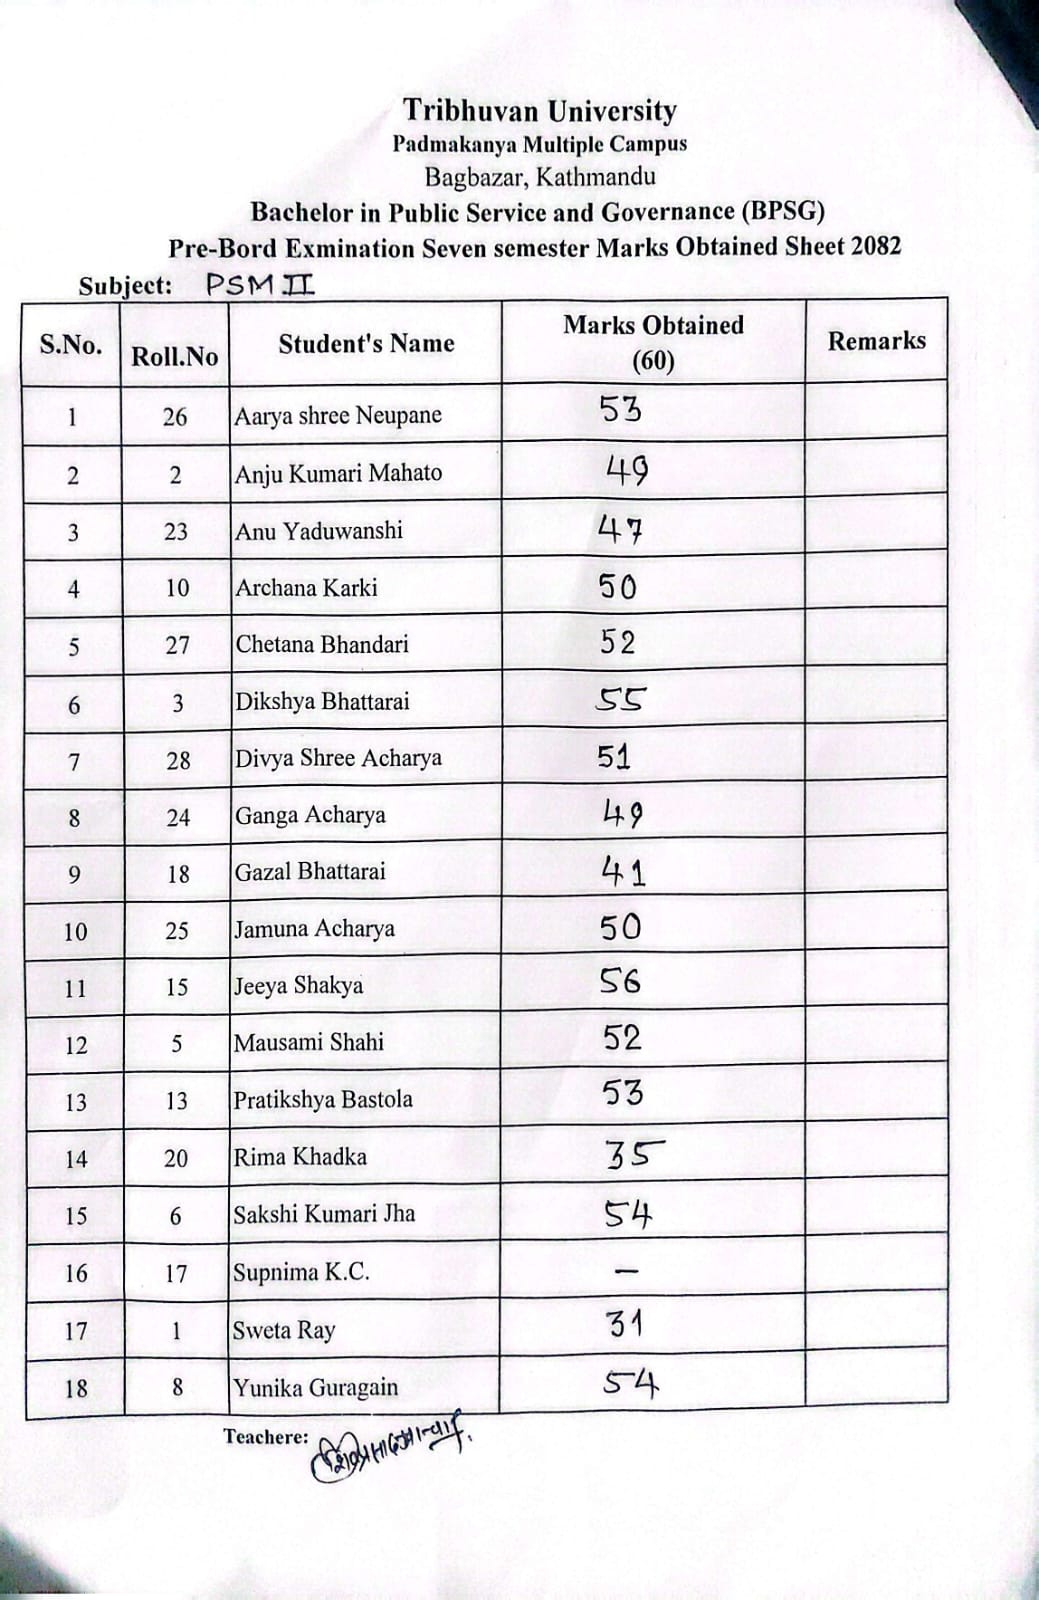 Tribhuvan University
Padmakanya Multiple Campus
Bagbazar, Kathmandu
Bachelor in Public Service and Governance (BPSG)
Pre-Bord Exmination Seven semester Marks Obtained Sheet 2082
Subject: PSM II
S.No. Roll.No Student's Name Marks Obtained (60) Remarks
1 26 Aarya shree Neupane 53
2 2 Anju Kumari Mahato 49
3 23 Anu Yaduwanshi 47
4 10 Archana Karki 50
5 27 Chetana Bhandari 52
6 3 Dikshya Bhattarai 55
7 28 Divya Shree Acharya 51
8 24 Ganga Acharya 49
9 18 Gazal Bhattarai 41
10 25 Jamuna Acharya 50
11 15 Jeeya Shakya 56
12 5 Mausami Shahi 52
13 13 Pratikshya Bastola 53
14 20 Rima Khadka 35
15 6 Sakshi Kumari Jha 54
16 17 Supnima K.C. –
17 1 Sweta Ray 31
18 8 Yunika Guragain 54
Teachere: